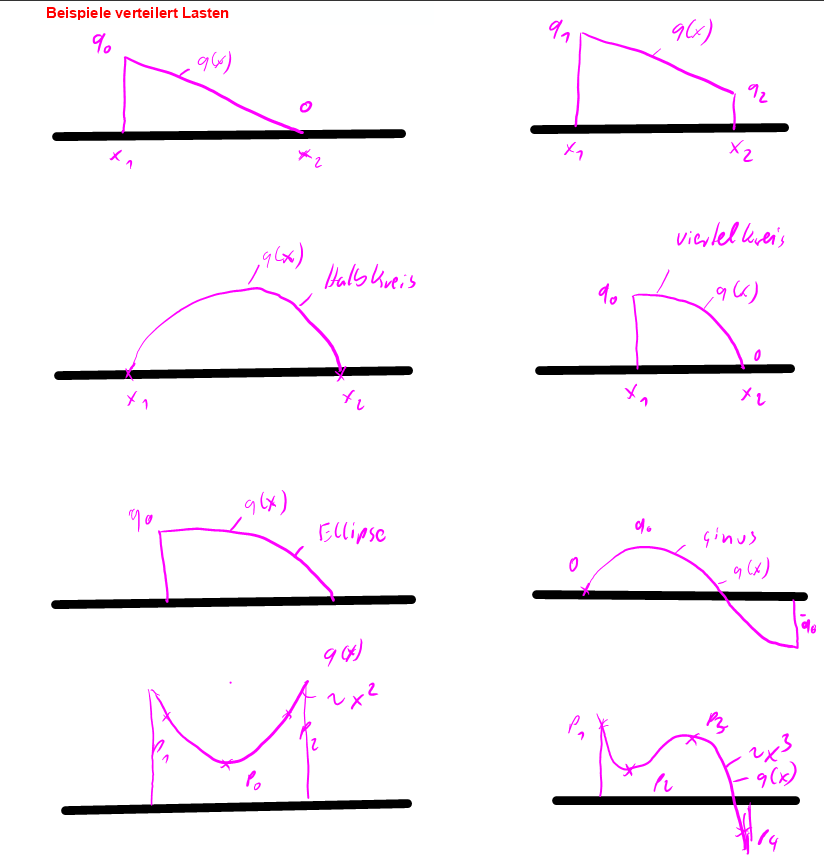 Beispiele verteilert Lasten
q0
q(x)
0
x1
x2
q1
q(x)
q2
x1
x2
q(x)
Halbkreis
x1
x2
viertelkreis
q0
q(x)
0
x1
x2
q0
q(x)
Ellipse
q0
sinus
0
q(x)
-q0
q(x)
~x²
P1
P2
P0
P1
P3
~x³
q(x)
P2
P4